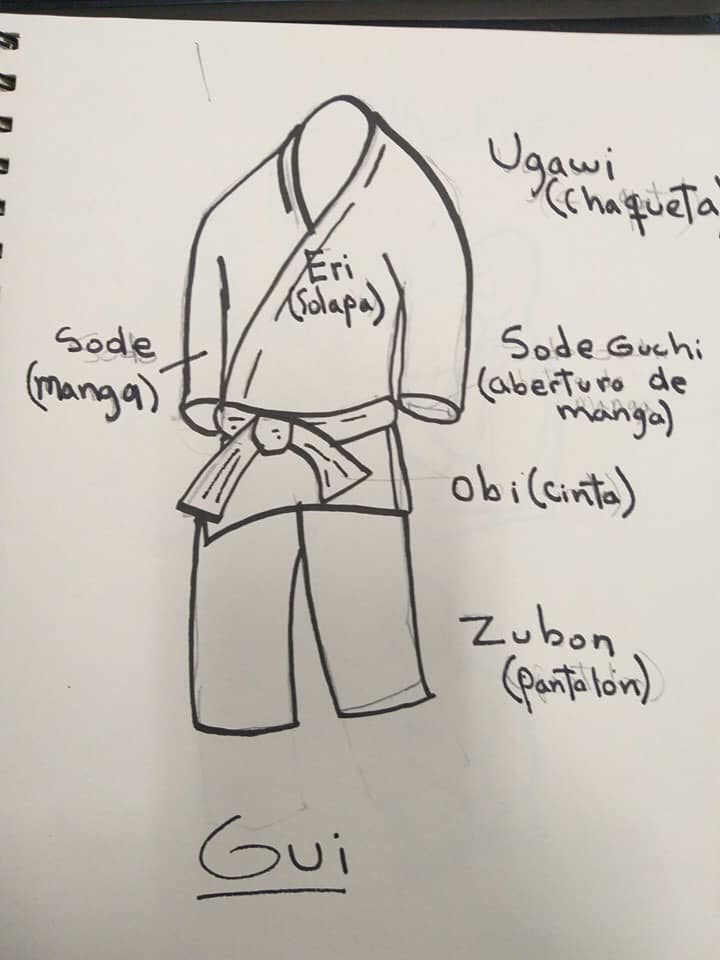 Ugawi
(Chaqueta)
Eri
(Solapa)
Sode
(manga)
Sode Guchi
(aberturo de
manga)
Obi (cinta)
Zubon
(pantalón)
Gui